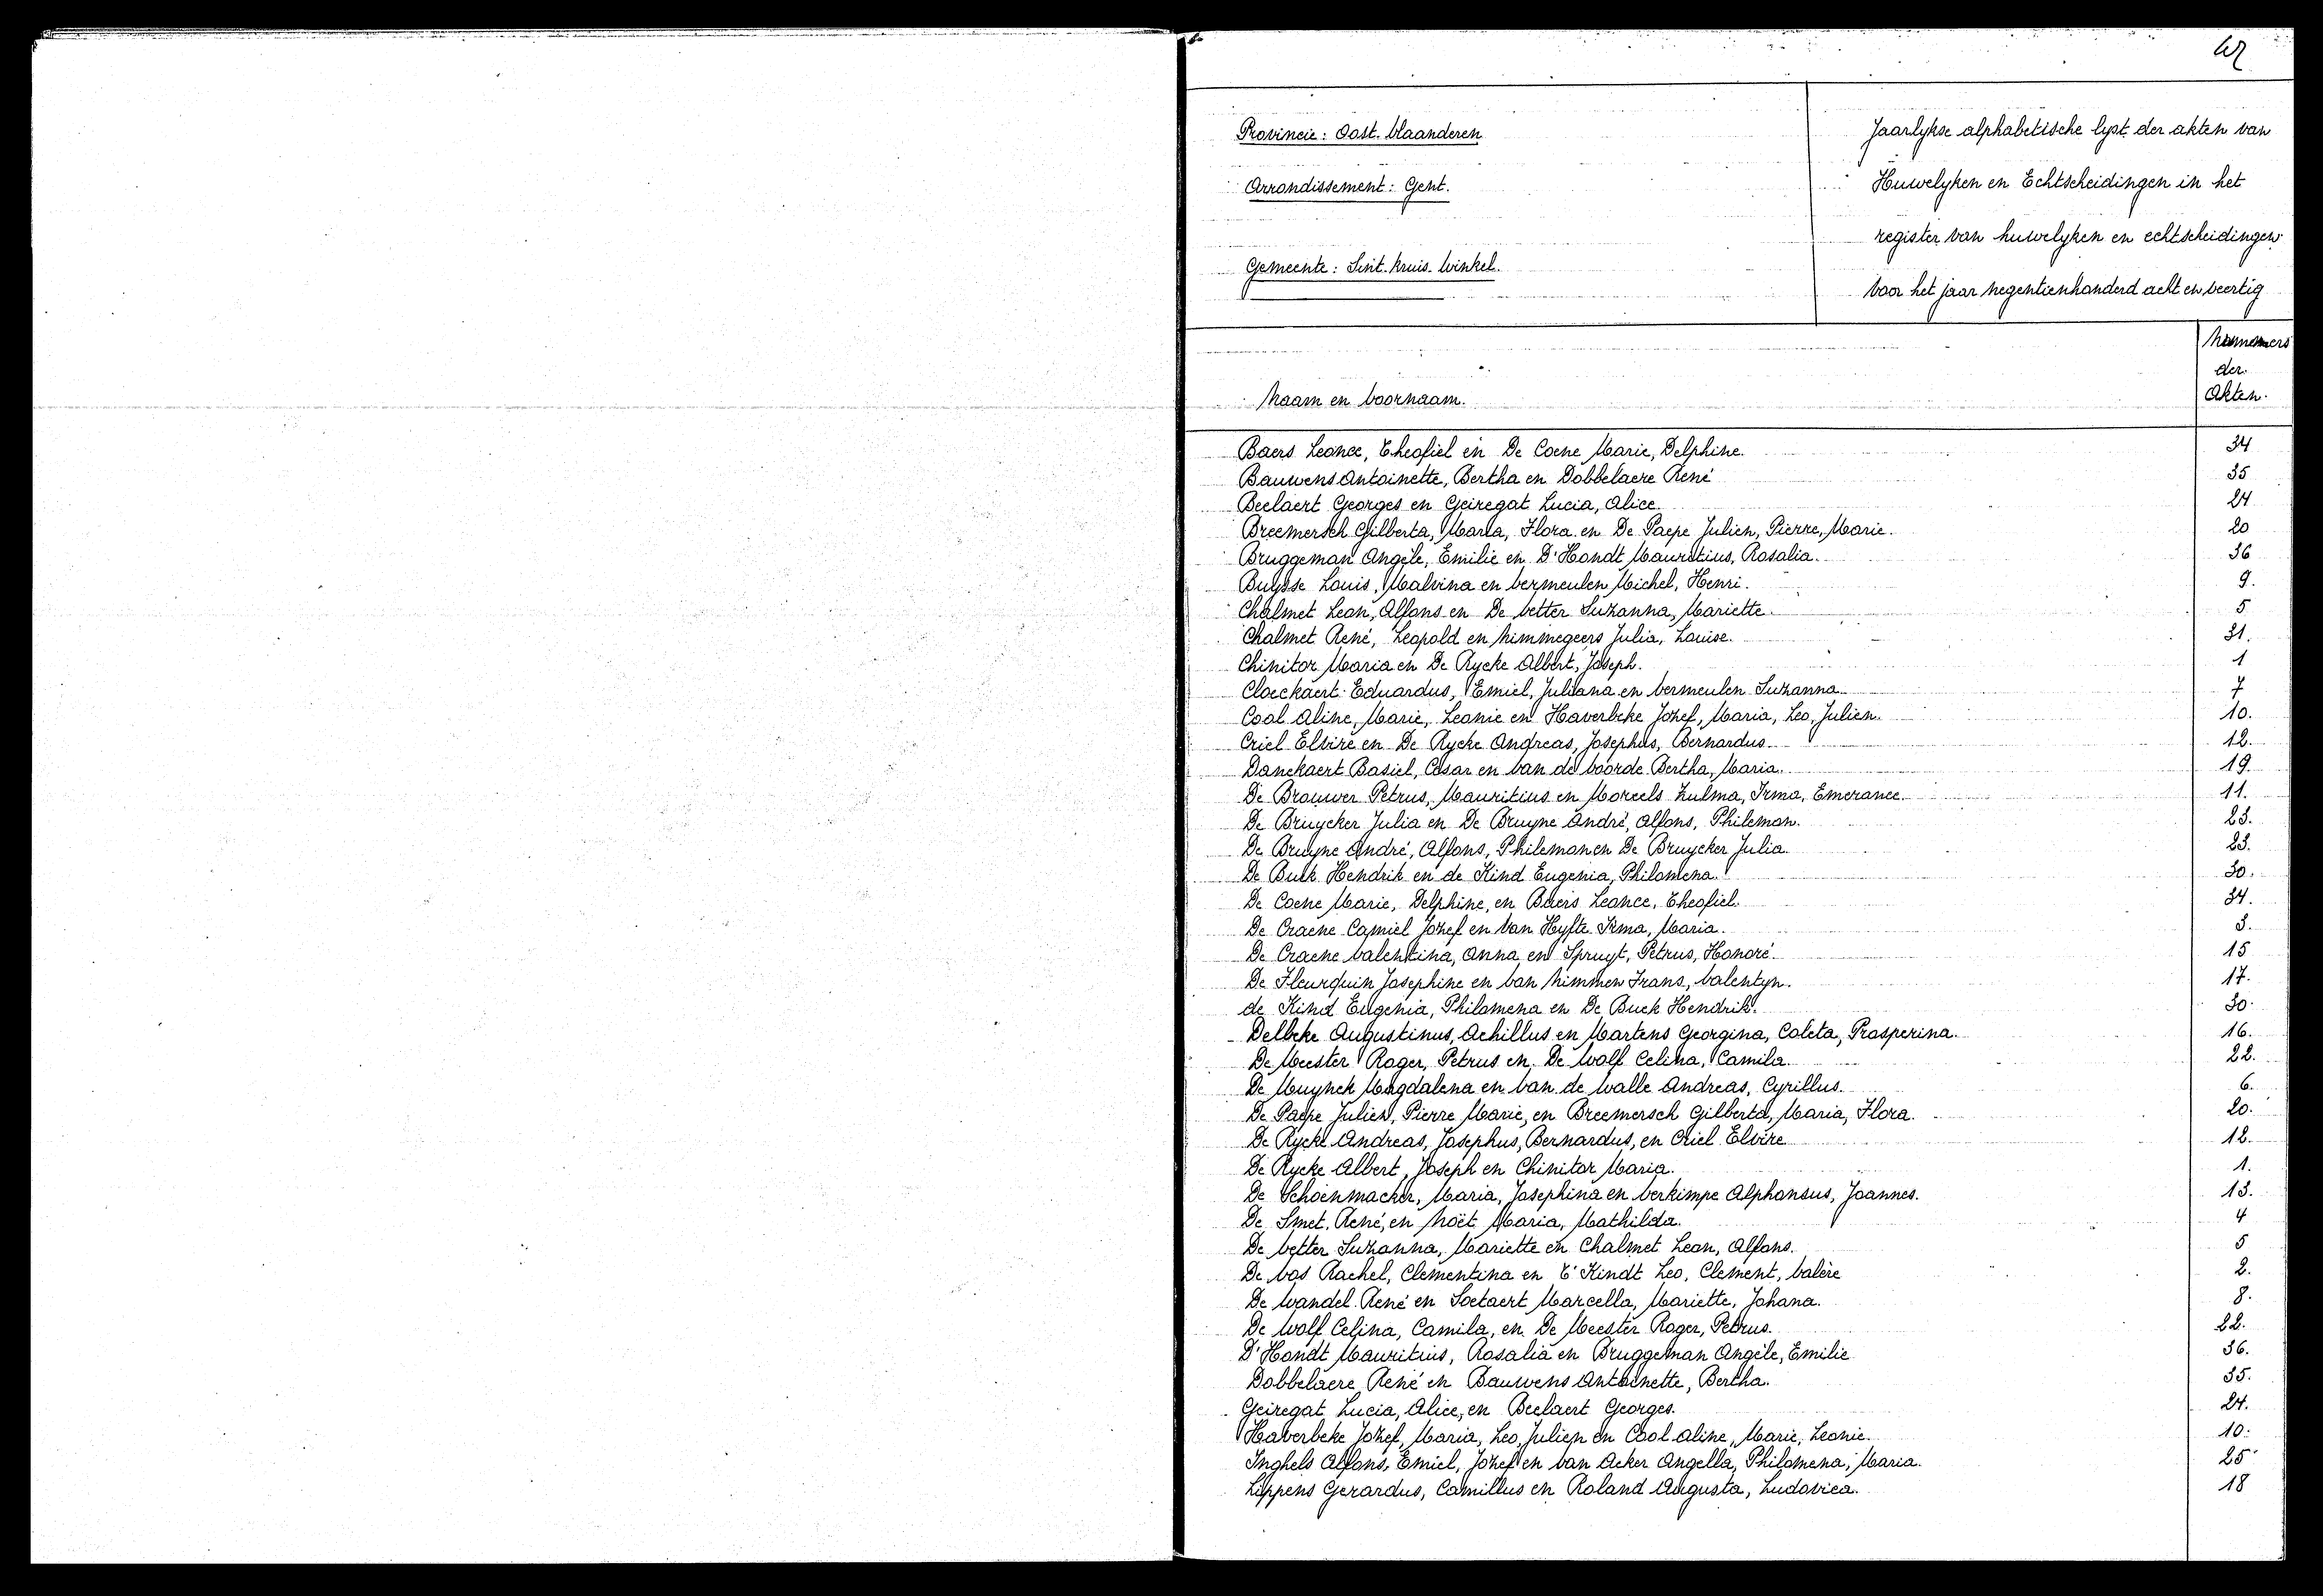 Provincie: Oost-Vlaanderen
Arrondissement: Gent.
Gemeente: Sint-Kruis-Winkel.
Jaarlykse alphabetische lyst der akten van
Huwelyken en Echtscheidingen in het
register van huwelyken en echtscheidingen
voor het jaar negentienhonderd acht en veertig
Naam en voornaam.
Nummers
der
Akten.
Baers Leonce, Theofiel en De Coene Marie, Delphine. 34
Bauwens Antoinette, Bertha en Dobbelaere René 35
Beelaert Georges en Geiregat Lucia, Alice. 24
Breemersch Gilberta, Maria, Flora en De Paepe Julien, Pierre, Marie. 20
Bruggeman Angèle, Emilie en D'Hondt Mauritius, Rosalia. 36
Buysse Louis, Malvina en Vermeulen Michel, Henri. 9.
Chalmet Leon, Alfons en De Vetter Suzanna, Mariette. 5
Chalmet René, Leopold en Nimmegeers Julia, Louise. 31.
Chinitor Maria en De Rycke Albert, Joseph. 1
Cloeckaert Eduardus, Emiel, Juliana en Vermeulen Suzanna. 7
Cool Aline, Marie, Leonie en Haverbeke Jozef, Maria, Leo, Julien. 10.
Criel Elvire en De Rycke Andreas, Josephus, Bernardus. 12.
Danckaert Basiel, Cesar en Van de Voorde Bertha, Maria. 19.
De Brouwer Petrus, Mauritius en Moreels Zulma, Irma, Emerance. 11.
De Bruycker Julia en De Bruyne André, Alfons, Philemon. 23.
De Bruyne André, Alfons, Philemon en De Bruycker Julia. 23.
De Buck Hendrik en de Kind Eugenia, Philomena. 30.
De Coene Marie, Delphine, en Baers Leonce, Theofiel. 34.
De Craene Camiel Jozef en Van Hyfte Irma, Maria. 3.
De Craene Valentina, Anna en Spruyt, Petrus, Honoré. 15
De Fleurquin Josephine en Van Nimmen Frans, Valentyn. 17.
de Kind Eugenia, Philomena en De Buck Hendrik. 30.
Delbeke Augustinus, Achillus en Martens Georgina, Coleta, Prosperina. 16.
De Meester Roger, Petrus en De Wolf Celina, Camila. 22.
De Muynck Magdalena en Van de Walle Andreas, Cyrillus. 6.
De Paepe Julien, Pierre Marie, en Breemersch Gilberta, Maria, Flora. 20.
De Rycke Andreas, Josephus, Bernardus, en Criel Elvire 12.
De Rycke Albert, Joseph en Chinitor Maria. 1.
De Schoenmacker, Maria, Josephina en Verkimpe Alphonsus, Joannes. 13.
De Smet, René, en Noët Maria, Mathilda. 4
De Vetter Suzanna, Mariette en Chalmet Leon, Alfons. 5
De Vos Rachel, Clementina en T'Kindt Leo, Clement, Valère 2.
De Wandel René en Soetaert Marcella, Mariette, Johana. 8.
De Wolf Celina, Camila, en De Meester Roger, Petrus. 22.
D'Hondt Mauritius, Rosalia en Bruggeman Angèle, Emilie 36.
Dobbelaere René en Bauwens Antoinette, Bertha. 35.
Geiregat Lucia, Alice, en Beelaert Georges. 24.
Haverbeke Jozef, Maria, Leo, Julien en Cool Aline, Marie, Leonie. 10.
Inghels Alfons, Emiel, Jozef en Van Acker Angella, Philomena, Maria. 25
Lippens Gerardus, Camillus en Roland Augusta, Ludovica. 18